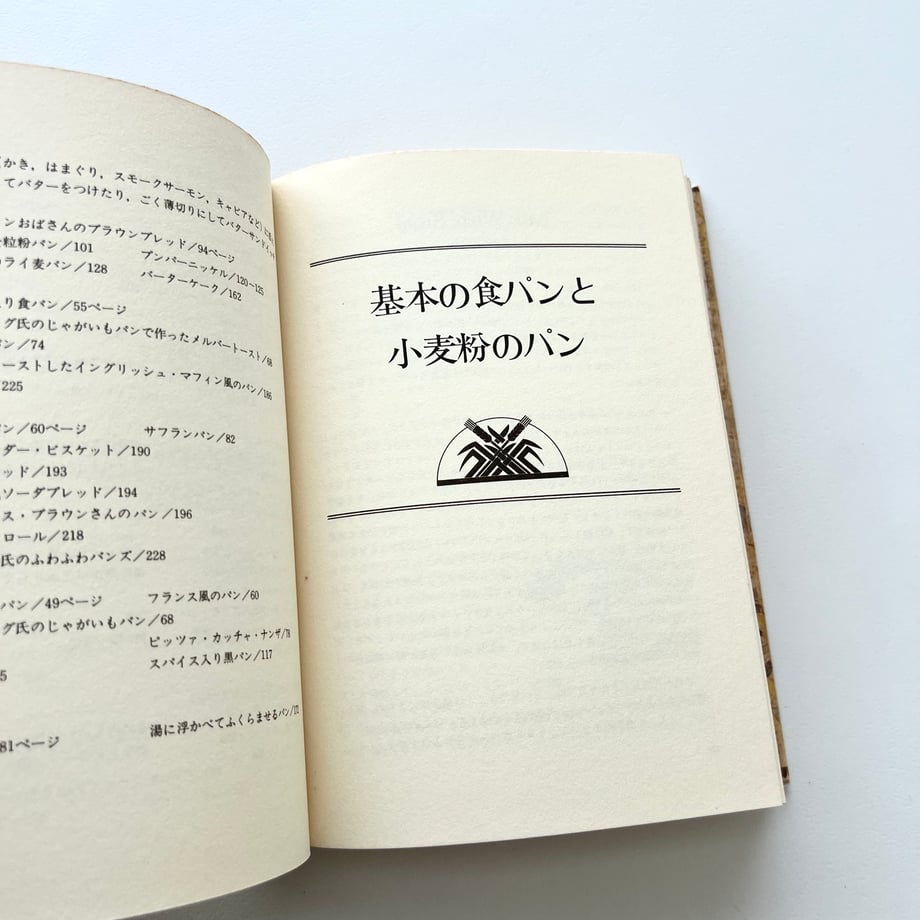 かき，はまぐり，スモークサーモン，キャビアなど
てバターをつけたり，ごく薄切りにしてバターサンドイッチ
ンおばさんのブラウンブレッド／94ページ
粒粉パン／101 プンパーニッケル／120〜125
ライ麦パン／128 バーターケーク／162
り食パン／55ページ
グ氏のじゃがいもパンで作ったメルバトースト／68
パン／74
ーストしたイングリッシュ・マフィン風のパン／186
225
パン／60ページ サフランパン／82
ダー・ビスケット／190
ッド／193
ソーダブレッド／194
ス・ブラウンさんのパン／196
ロール／218
氏のふわふわバンズ／228
パン／49ページ フランス風のパン／60
グ氏のじゃがいもパン／68
ピッツァ・カッチャ・ナンザ／78
スパイス入り黒パン／117
5
湯に浮かべてふくらませるパン／172
81ページ
基本の食パンと
小麦粉のパン